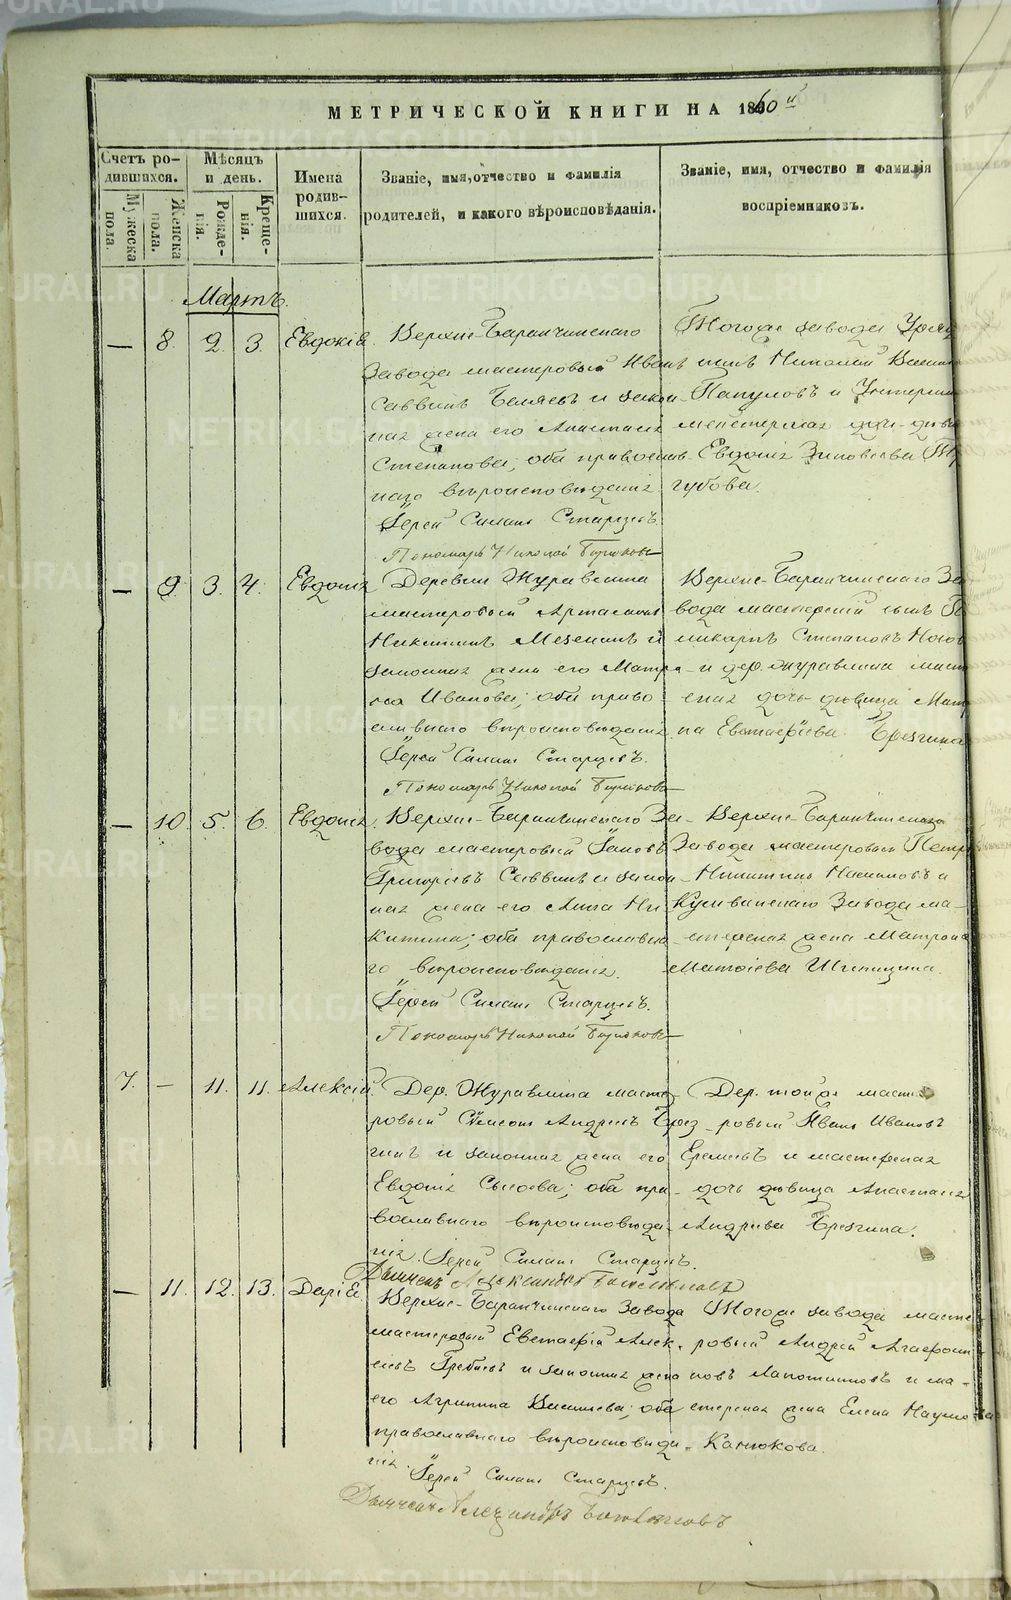 МЕТРИЧЕСКОЙ КНИГИ НА 1860 й
Счетъ родившихся.
Мужеска пола.
Женска пола.
Мѣсяцъ и день.
Рожденія.
Крещенія.
Имена родившихся.
Званіе, имя, отчество и фамилія родителей, и какого вѣроисповѣданія.
Званіе, имя, отчество и фамилія воспріемниковъ.
Мартъ.
— 8. 2. 3. Евдокія.
Верхне-Баранчинскаго
завода мастеровый Иванъ
Саввинъ Беляевъ и закон-
ная жена его Анастасія
Степанова; оба православ-
наго вѣроисповѣданія.
Іерей Симеонъ Старцевъ.
Пономарь Николай
Тогоже завода
Николай
Папуловъ и Унтеръ
шмейстерская дочь дѣви
Евдокія Зиновьева
губова.
— 9. 3. 4. Евдокія
Деревни Журавлика
мастеровый Артамонъ
Никитинъ Мезенинъ и
законная жена его Матре-
на Иванова; оба право-
славнаго вѣроисповѣданія.
Іерей Симеонъ Старцевъ.
Пономарь Николай
Верхне-Баранчинскаго За-
вода мастерскій сынъ По
ликарпъ Степановъ Носов
и дер. Журавлика масте
рская дочь дѣвица Матр
на Евстафіева Брезгина
— 10. 5. 6. Евдокія.
Верхне-Баранчинскаго За-
вода мастеровый Іаковъ
Григорьевъ Саввинъ и закон-
ная жена его Анна Ни-
китина; оба православна-
го вѣроисповѣданія.
Іерей Симеонъ Старцевъ.
Пономарь Николай
Верхне-Баранчинскаго
Завода мастеровый Петръ
Никитинъ и
Кушвинскаго Завода ма-
стерская жена Матрона
Матѳіева Шипицина.
7. — 11. 11. Алексій.
Дер. Журавлика масте-
ровый Симеонъ Андреевъ Брез-
гинъ и законная жена его
Евдокія Сысоева; оба пра-
вославнаго вѣроисповѣда-
нія. Іерей Симеонъ Старцевъ.
Дьячекъ Александръ
Дер. той же масте-
ровый Иванъ Ивановъ
Еремеевъ и мастерская
дочь дѣвица Анастасія
Андреева Брезгина.
— 11. 12. 13. Дарія.
Верхне-Баранчинскаго Завода
мастеровый Евстафій Алек-
сеевъ Гребневъ и законная жена
его Агрипина Васильева; оба
православнаго вѣроисповѣда-
нія. Іерей Симеонъ Старцевъ.
Дьячекъ Александръ
Тогоже завода масте-
ровый Андрей Агафон-
новъ Лапотниковъ и ма-
стерская жена Елена Наумова
Канюкова.
METRIKI.GASO-URAL.RU